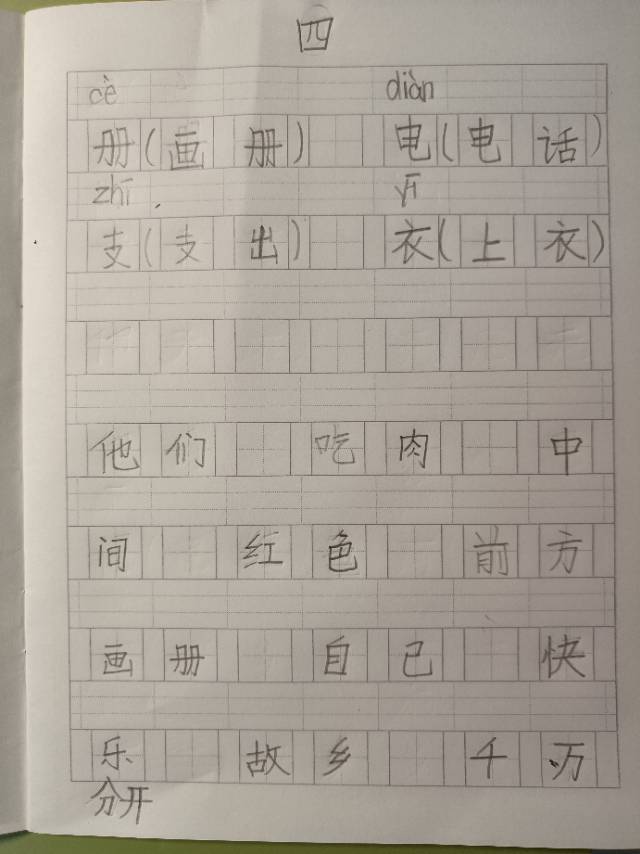 四
cè diàn
册(画册) 电(电话)
zhī yī
支(支出) 衣(上衣)
他们 吃肉 中
间 红色 前方
画册 自己 快
乐 故乡 千万
分开